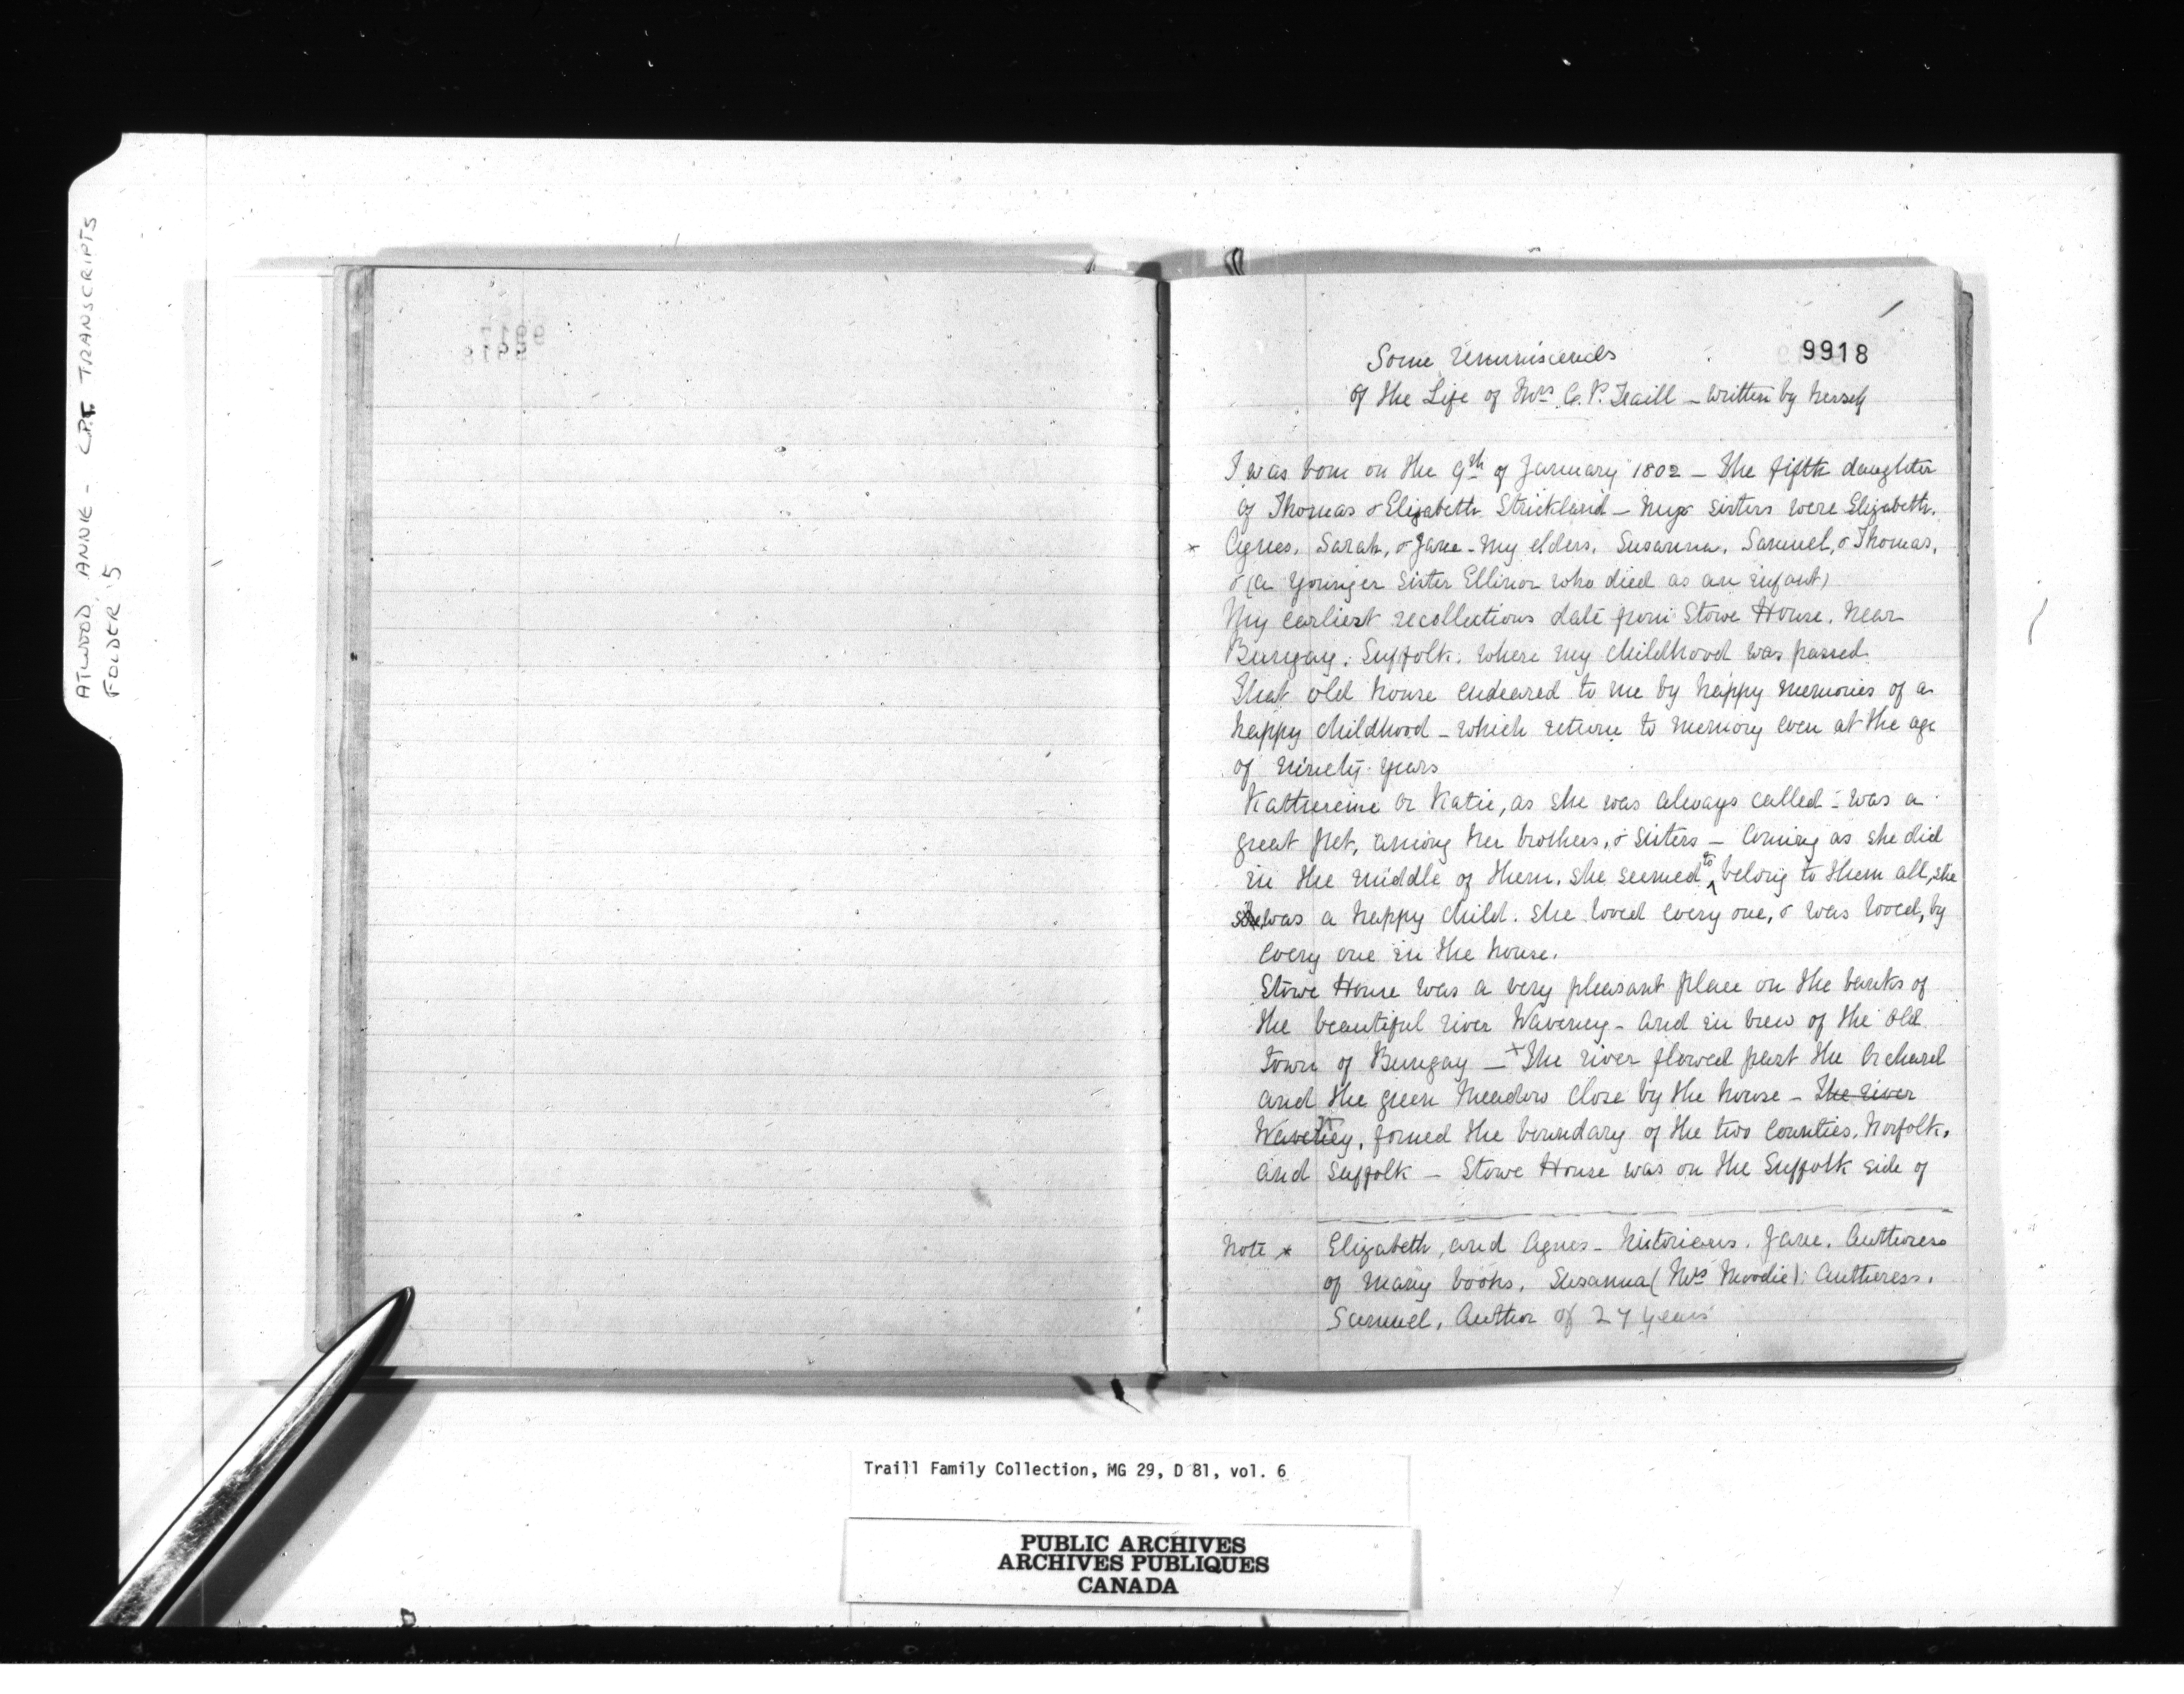 ATWOOD, ANNIE - C.P.T. TRANSCRIPTS
FOLDER 5
9918
Some reminiscences
of the Life of Mrs C. P. Traill - written by herself
I was born on the 9th of January 1802 - The fifth daughter
of Thomas & Elizabeth Strickland - My sisters were Elizabeth.
* Agnes. Sarah, & Jane - my elders. Susanna. Samuel, & Thomas.
& (a younger sister Ellinor who died as an infant)
My earliest recollections date from Stowe House. Near
Bungay. Suffolk. where my childhood was passed.
That old house endeared to me by happy memories of a
happy childhood - which return to memory even at the age
of ninety years
Kathereine or Katie, as she was always called - was a
great pet, among her brothers, & sisters - Coming as she did
in the middle of them. she seemed to belong to them all, she
was a happy child. She loved every one, & was loved, by
every one in the house.
Stowe House was a very pleasant place on the banks of
the beautiful river Waveney - and in view of the old
town of Bungay - x The river flowed past the Orchard
and the green meadow close by the house - The river
Waveney, formed the boundary of the two Counties. Norfolk.
and Suffolk - Stowe House was on the Suffolk side of
Note * Elizabeth, and Agnes - historians. Jane. Authoress
of many books. Susanna (Mrs Moodie) Autheress.
Samuel, Author of 27 years
Traill Family Collection, MG 29, D 81, vol. 6
PUBLIC ARCHIVES
ARCHIVES PUBLIQUES
CANADA